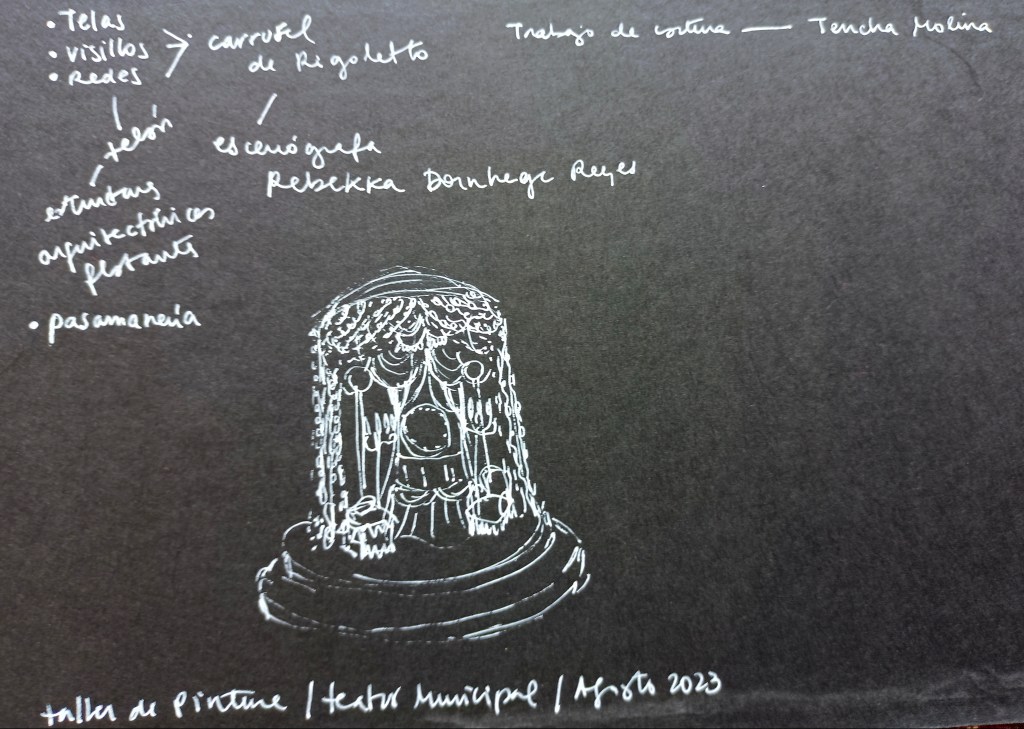 • Telas
• visillos
• Redes
carrusel
de Rigoletto
Trabajo de cortina — Tencha Molina
telón
escenógrafa
Rebekka Dornhege Reyes
estructuras
arquitectónicas
flotantes
• pasamanería
taller de Pintura / teatro Municipal / Agosto 2023